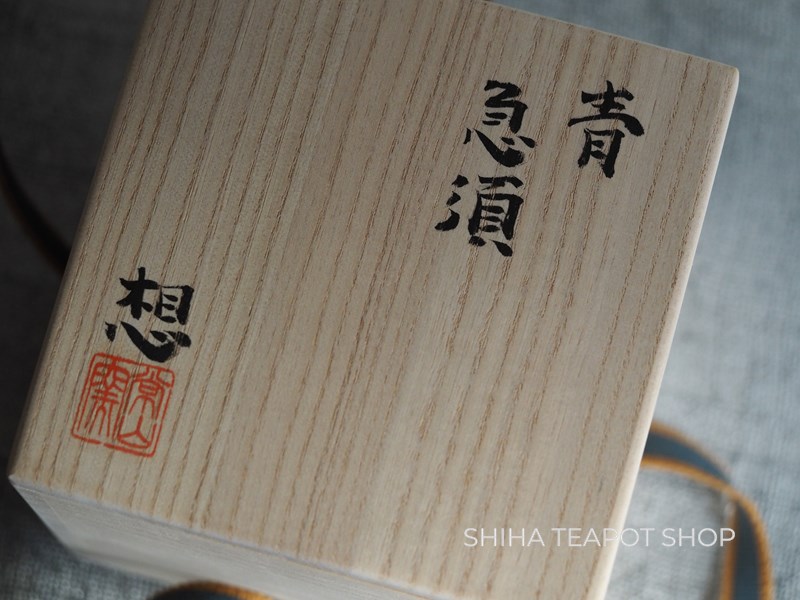 青
急須
想
常山窯
SHIHA TEAPOT SHOP